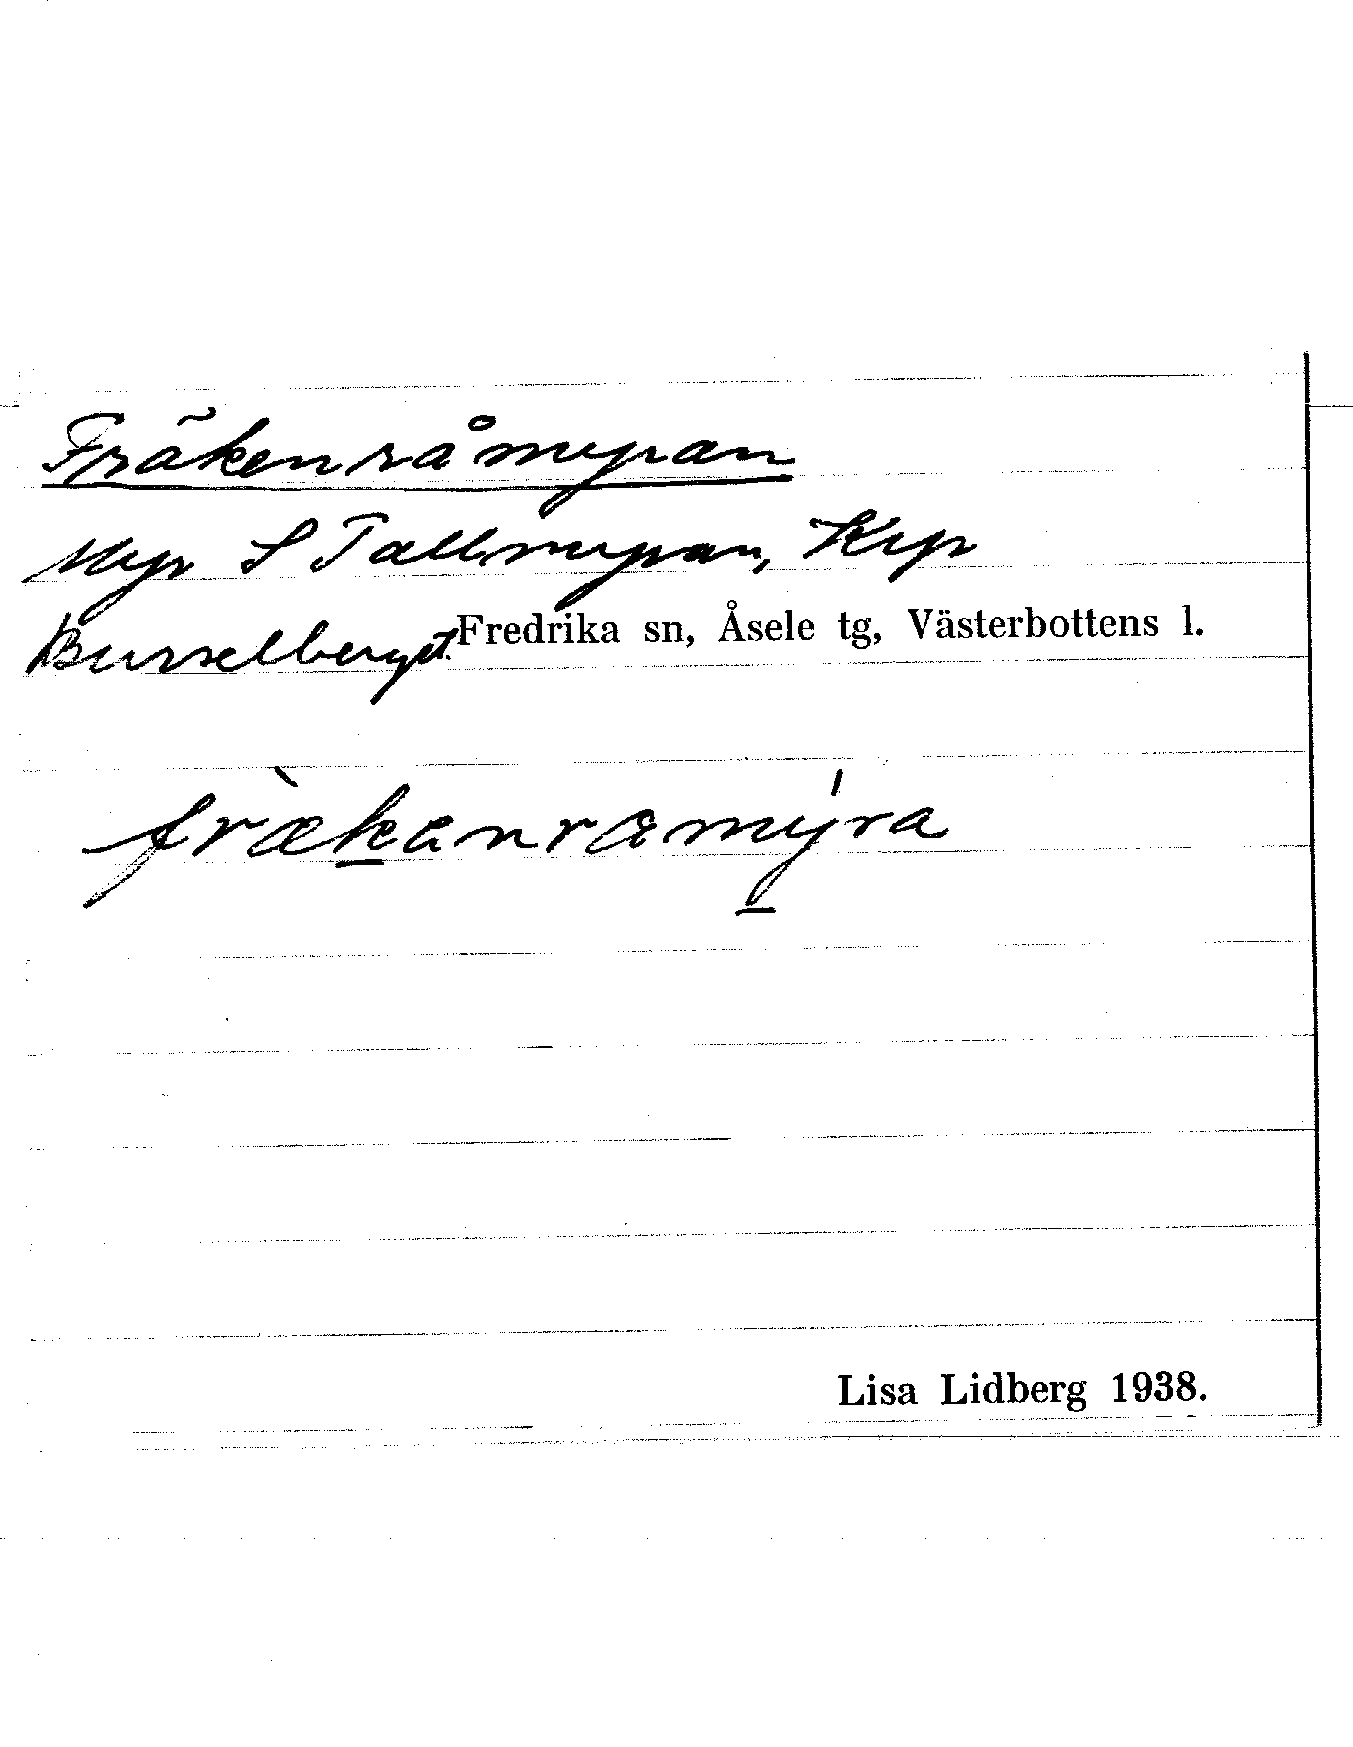 Fräkenråmyran
Myr S Tallmyran, Kyr
Busselberget. Fredrika sn, Åsele tg, Västerbottens l.
frækanramyra
Lisa Lidberg 1938.